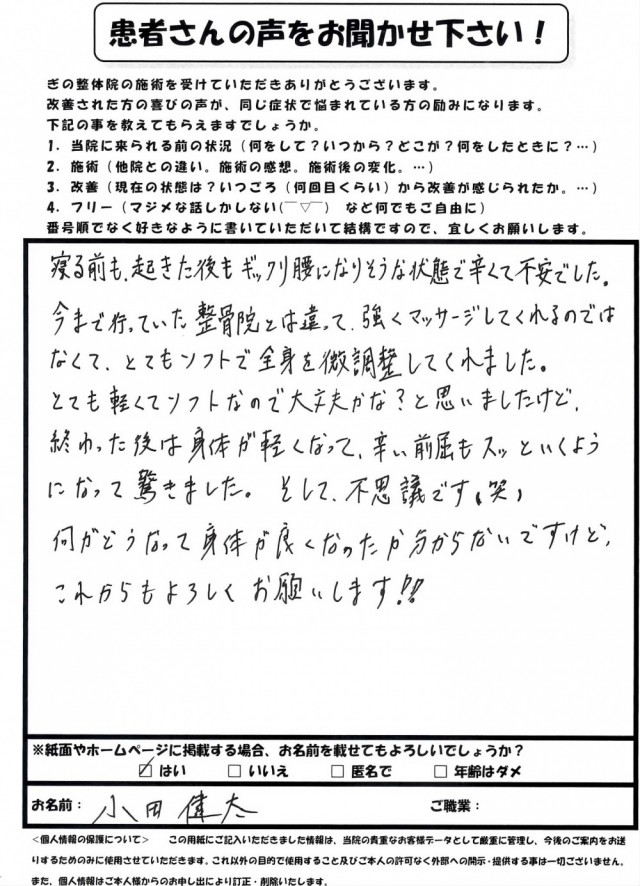 患者さんの声をお聞かせ下さい！
ぎの整体院の施術を受けていただきありがとうございます。
改善された方の喜びの声が、同じ症状で悩まれている方の励みになります。
下記の事を教えてもらえますでしょうか。
1．当院に来られる前の状況（何をして？いつから？どこが？何をしたときに？…）
2．施術（他院との違い。施術の感想。施術後の変化。…）
3．改善（現在の状態は？いつごろ（何回目くらい）から改善が感じられたか。…）
4．フリー（マジメな話しかしない(￣▽￣)　など何でもご自由に）
番号順でなく好きなように書いていただいて結構ですので、宜しくお願いします。
寝る前も、起きた後もギックリ腰になりそうな状態で辛くて不安でした。
今まで行っていた整骨院とは違って、強くマッサージしてくれるのでは
なくて、とてもソフトで全身を微調整してくれました。
とても軽くてソフトなので大丈夫かな？と思いましたけど、
終わった後は身体が軽くなって、辛い前屈もスッといくよう
になって驚きました。そして、不思議です（笑）
何がどうなって身体が良くなったか分からないですけど、
これからもよろしくお願いします!!
※紙面やホームページに掲載する場合、お名前を載せてもよろしいでしょうか？
☑ はい　□ いいえ　□ 匿名で　□ 年齢はダメ
お名前：小田 健太　ご職業：
＜個人情報の保護について＞　この用紙にご記入いただきました情報は、当院の貴重なお客様データとして厳重に管理し、今後のご案内をお送
りするためのみに使用させていただきます。これ以外の目的で使用すること及びご本人の許可なく外部への開示・提供する事は一切ございません。
また、個人情報はご本人様からのお申し出により訂正・削除いたします。